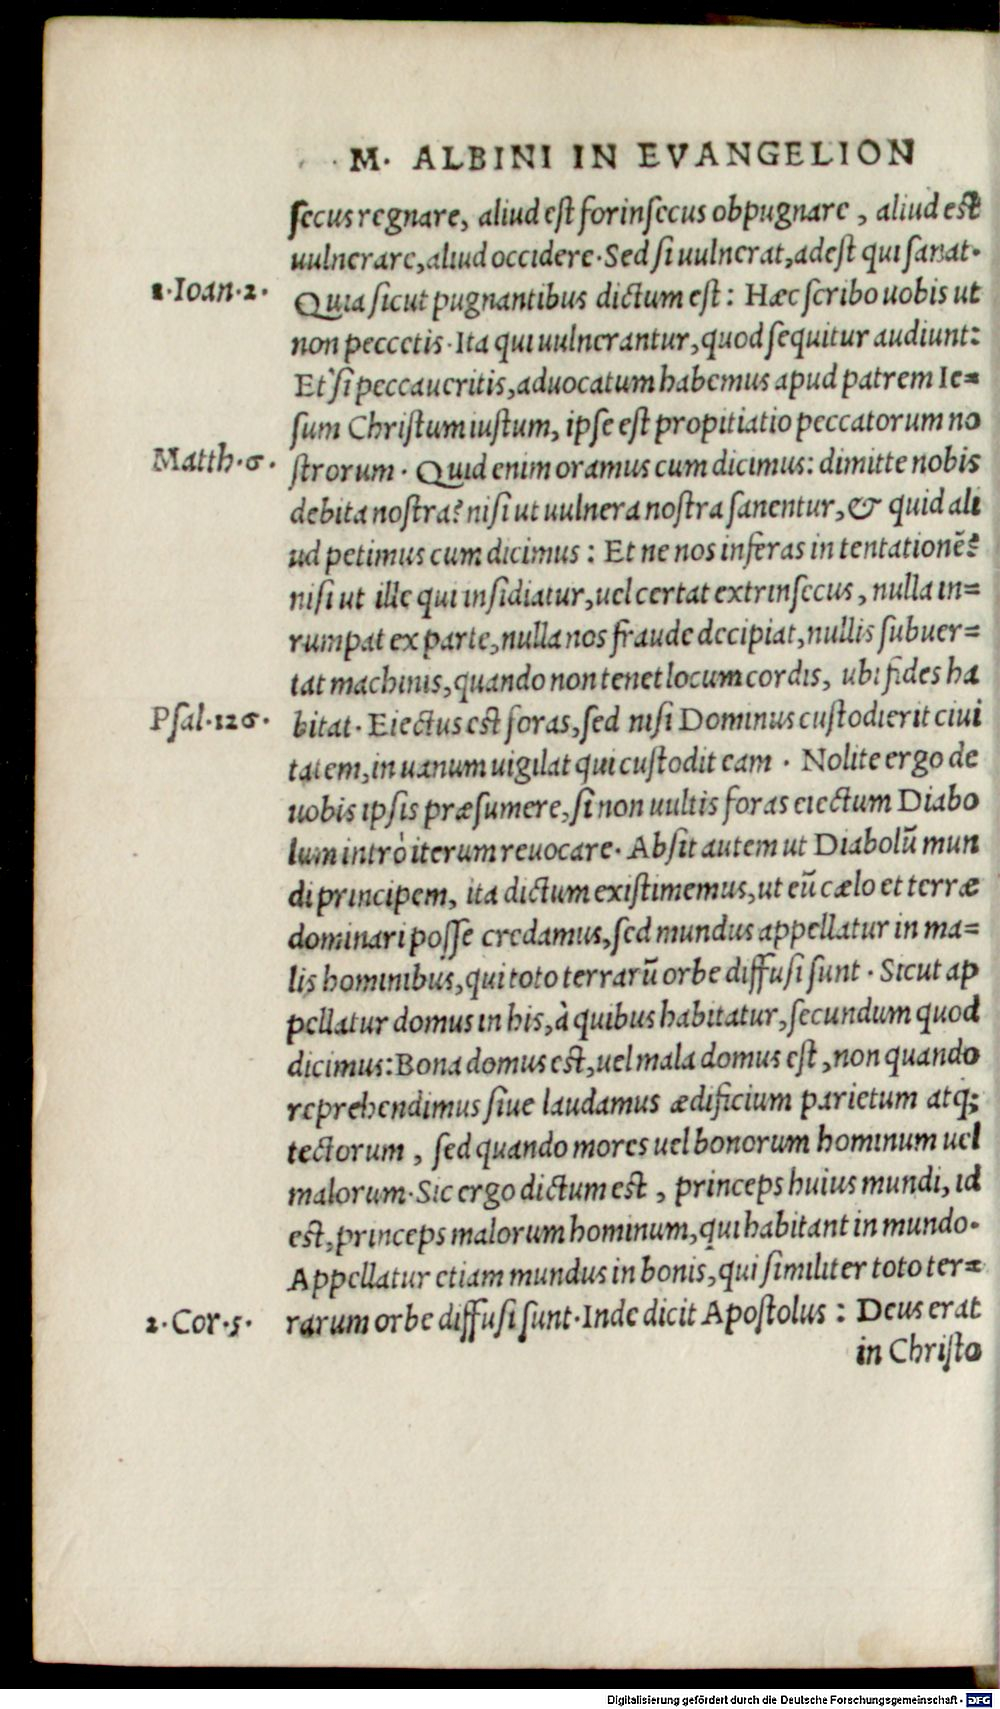 M. ALBINI IN EVANGELION
secus regnare, aliud est forinsecus obpugnare, aliud est
uulnerare, aliud occidere. Sed si uulnerat, adest qui sanat.
1. Ioan. 2.
Quia sicut pugnantibus dictum est: Hæc scribo uobis ut
non peccetis. Ita qui uulnerantur, quod sequitur audiunt:
Et si peccaueritis, aduocatum habemus apud patrem Ie=
sum Christum iustum, ipse est propitiatio peccatorum no
Matth. 6.
strorum. Quid enim oramus cum dicimus: dimitte nobis
debita nostra? nisi ut uulnera nostra sanentur, & quid ali
ud petimus cum dicimus: Et ne nos inferas in tentationē?
nisi ut ille qui insidiatur, uel certat extrinsecus, nulla in=
rumpat ex parte, nulla nos fraude decipiat, nullis subuer=
tat machinis, quando non tenet locum cordis, ubi fides ha
Psal. 126.
bitat. Eiectus est foras, sed nisi Dominus custodierit ciui
tatem, in uanum uigilat qui custodit eam. Nolite ergo de
uobis ipsis præsumere, si non uultis foras eiectum Diabo
lum intrò iterum reuocare. Absit autem ut Diabolū mun
di principem, ita dictum existimemus, ut eū cælo et terræ
dominari posse credamus, sed mundus appellatur in ma=
lis hominibus, qui toto terrarū orbe diffusi sunt. Sicut ap
pellatur domus in his, à quibus habitatur, secundum quod
dicimus: Bona domus est, uel mala domus est, non quando
reprehendimus siue laudamus ædificium parietum atq;
tectorum, sed quando mores uel bonorum hominum uel
malorum. Sic ergo dictum est, princeps huius mundi, id
est, princeps malorum hominum, qui habitant in mundo.
Appellatur etiam mundus in bonis, qui similiter toto ter=
2. Cor. 5.
rarum orbe diffusi sunt. Inde dicit Apostolus: Deus erat
in Christo
Digitalisierung gefördert durch die Deutsche Forschungsgemeinschaft - DFG